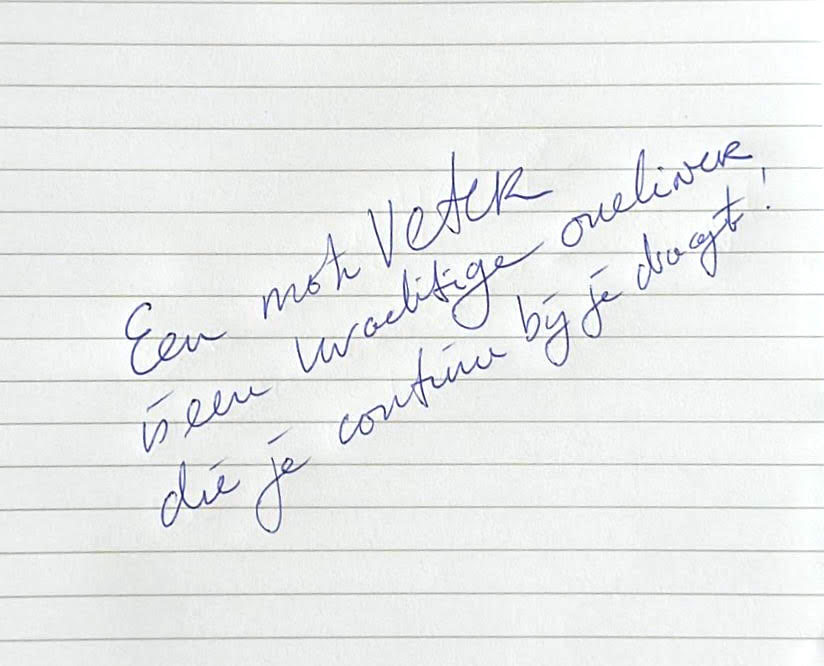 Een motiVeter
is een krachtige oneliner
die je continu bij je draagt!